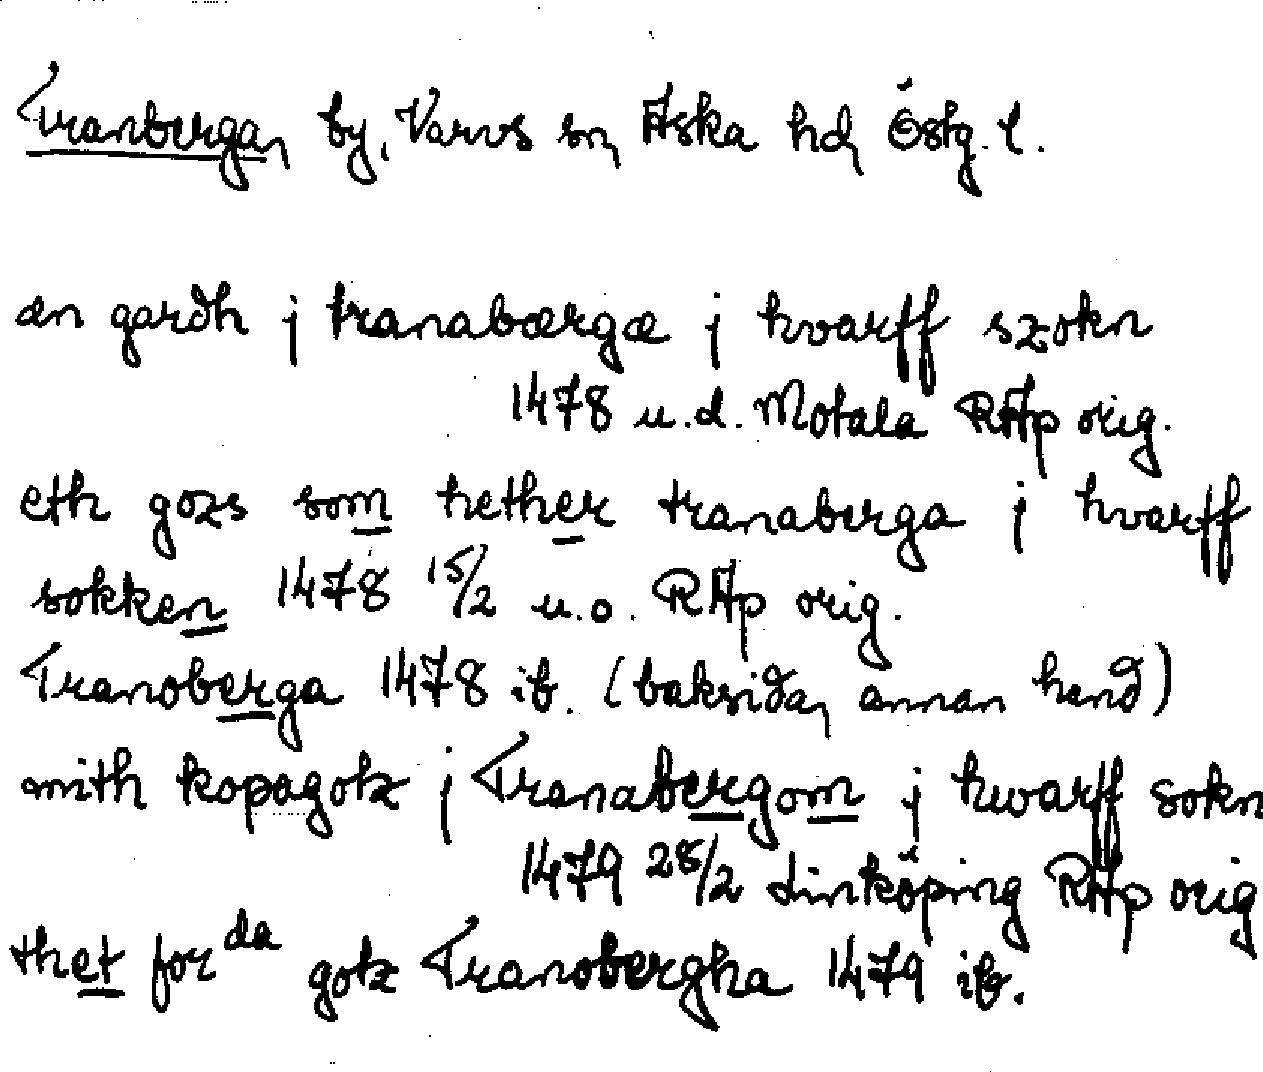 Tranberga, by, Varvs sn, Aska hd, Östg. l.
æn gardh j tranabærgæ j hvarff szokn
1478 u.d. Motala RAp orig.
eth gozs som hether tranaberga j hvarff
sokken 1478 15/2 u.o. RAp orig.
Tranoberga 1478 ib. (baksida, annan hand)
mith kopagotz j Tranabergom j hwarff sokn
1479 28/2 Linköping RAp orig
thet for da gotz Tranobergha 1479 ib.